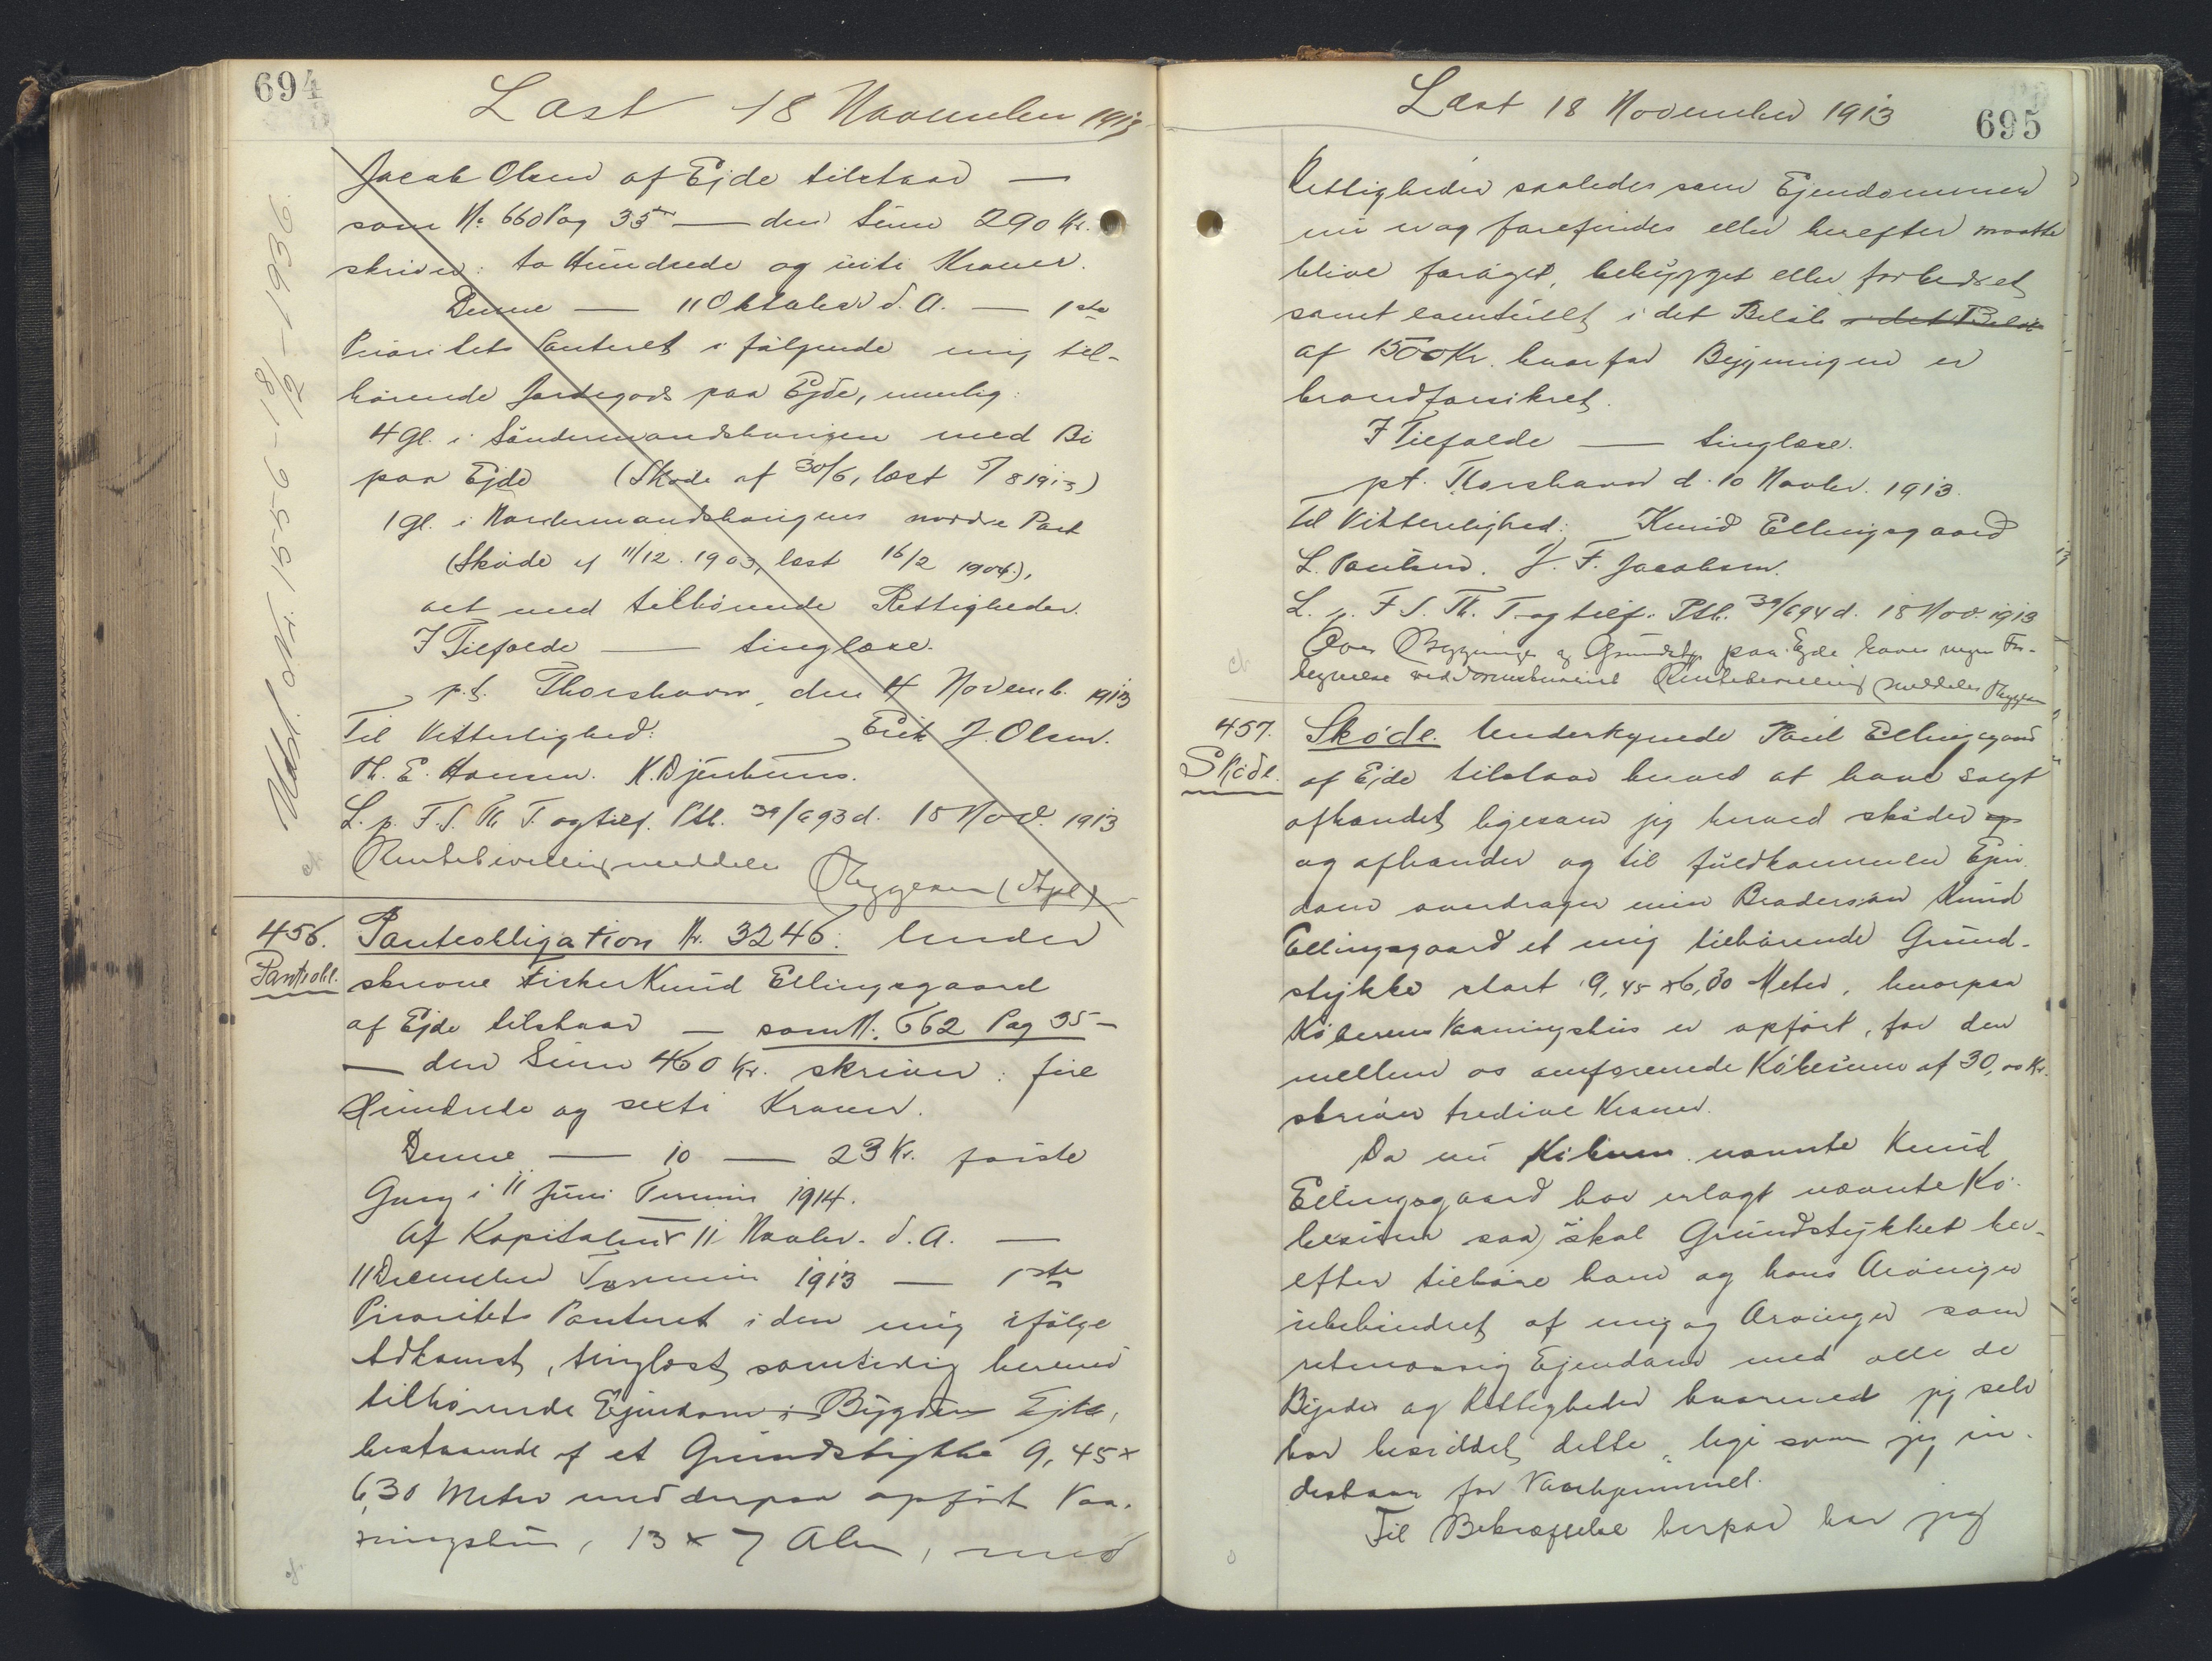 694
Læst 18 November 1913
Jacob Olsen af Ejde tilstaar —
som No 660 Pag 35 — den Sum 290 Kr.
skriver: to Hundrede og niti Kroner.
Denne — 11 Oktober d. A. — 1ste
Prioritets Panteret i følgende mig til-
hørende Jordegods paa Ejde, nemlig:
4 Gl. i Søndermandshaugen med Bi
paa Ejde (Skøde af 30/6, læst 5/8 1913)
1 Gl. i Nordermandshaugens nordre Part
(Skøde af 11/12. 1903, læst 16/2 1904),
alt med tilhørende Rettigheder.
I Tilfælde — tinglæse.
p.t. Thorshavn, den 4 Novemb. 1913
Til Vitterlighed: Erik J. Olsen.
Th. E. Hansen. K. Djurhuus.
L. p. F. S. Th. T. og tilf. Ptb. 39/693 d. 18 Nov. 1913
Rentebevilling meddeles
Udsl. 18/2 - 1936.
456.
Pantobl.
Panteobligation Nr. 3246. Under
skrevne Fisker Knud Ellingsgaard
af Ejde tilstaar — som No. 662 Pag 35 —
— den Sum 460 Kr. skriver: fire
Hundrede og sexti Kroner.
Denne — 10 — 23 Kr. første
Gang i 11 Juni Termin 1914.
Af Kapitalen 11 Novbr. d. A. —
11 December Termin 1913 — 1ste
Prioritets Panteret i den mig ifølge
Adkomst, tinglæst samtidig herned
tilhørende Ejendom i Bygden Ejde,
bestaaende af et Grundstykke 9,45 x
6,30 Meter med derpaa opført Vaa-
ningshus, 13 x 7 Alen, med
Læst 18 November 1913
695
Rettigheder saaledes som Ejendommen
nu er og forefindes eller herefter maatte
blive forøget, bebygget eller forbedret
samt eventuelt i det Beløb i det Beløb
af 1500 Kr. hvorfor Bygningen er
brandforsikret.
I Tilfælde — tinglæse.
pt. Thorshavn d. 10 Novbr. 1913.
Til Vitterlighed: Knud Ellingsgaard
L. Poulsen. J. F. Jacobsen.
L. p. F. S. Th. T. og tilf. Ptb. 39/694 d. 18 Nov. 1913
Over Bygninger og Grundstyk paa Ejde haves ingen For-
Rentebevilling meddeles
457.
Skøde.
Skøde. Underkynede Poul Ellingsgaard
af Ejde tilstaar herved at have solgt
afhændet ligesom jeg herved skøder og
og afhænder og til fuldkommen Ejen
dom overdrager min Brodersøn Knud
Ellingsgaard et mig tilhørende Grund-
stykke stort 9,45 x 6,30 Meter, hvorpaa
Køberens Vaaningshus er opført, for den
mellem os omforenede Købesum af 30,00 Kr.
skriver tredive Kroner.
Da nu Køberen nævnte Knud
Ellingsgaard har erlagt nævnte Kø-
besum saa skal Grundstykket her-
efter tilhøre ham og hans Arvinger
ubehindret af mig og Arvinger som
retmæssig Ejendom med alle de
Byrder og Rettigheder hvormed jeg selv
har besiddet dette, lige som jeg in-
destaar for Vanhjemmel.
Til Bekræftelse herpaa har jeg